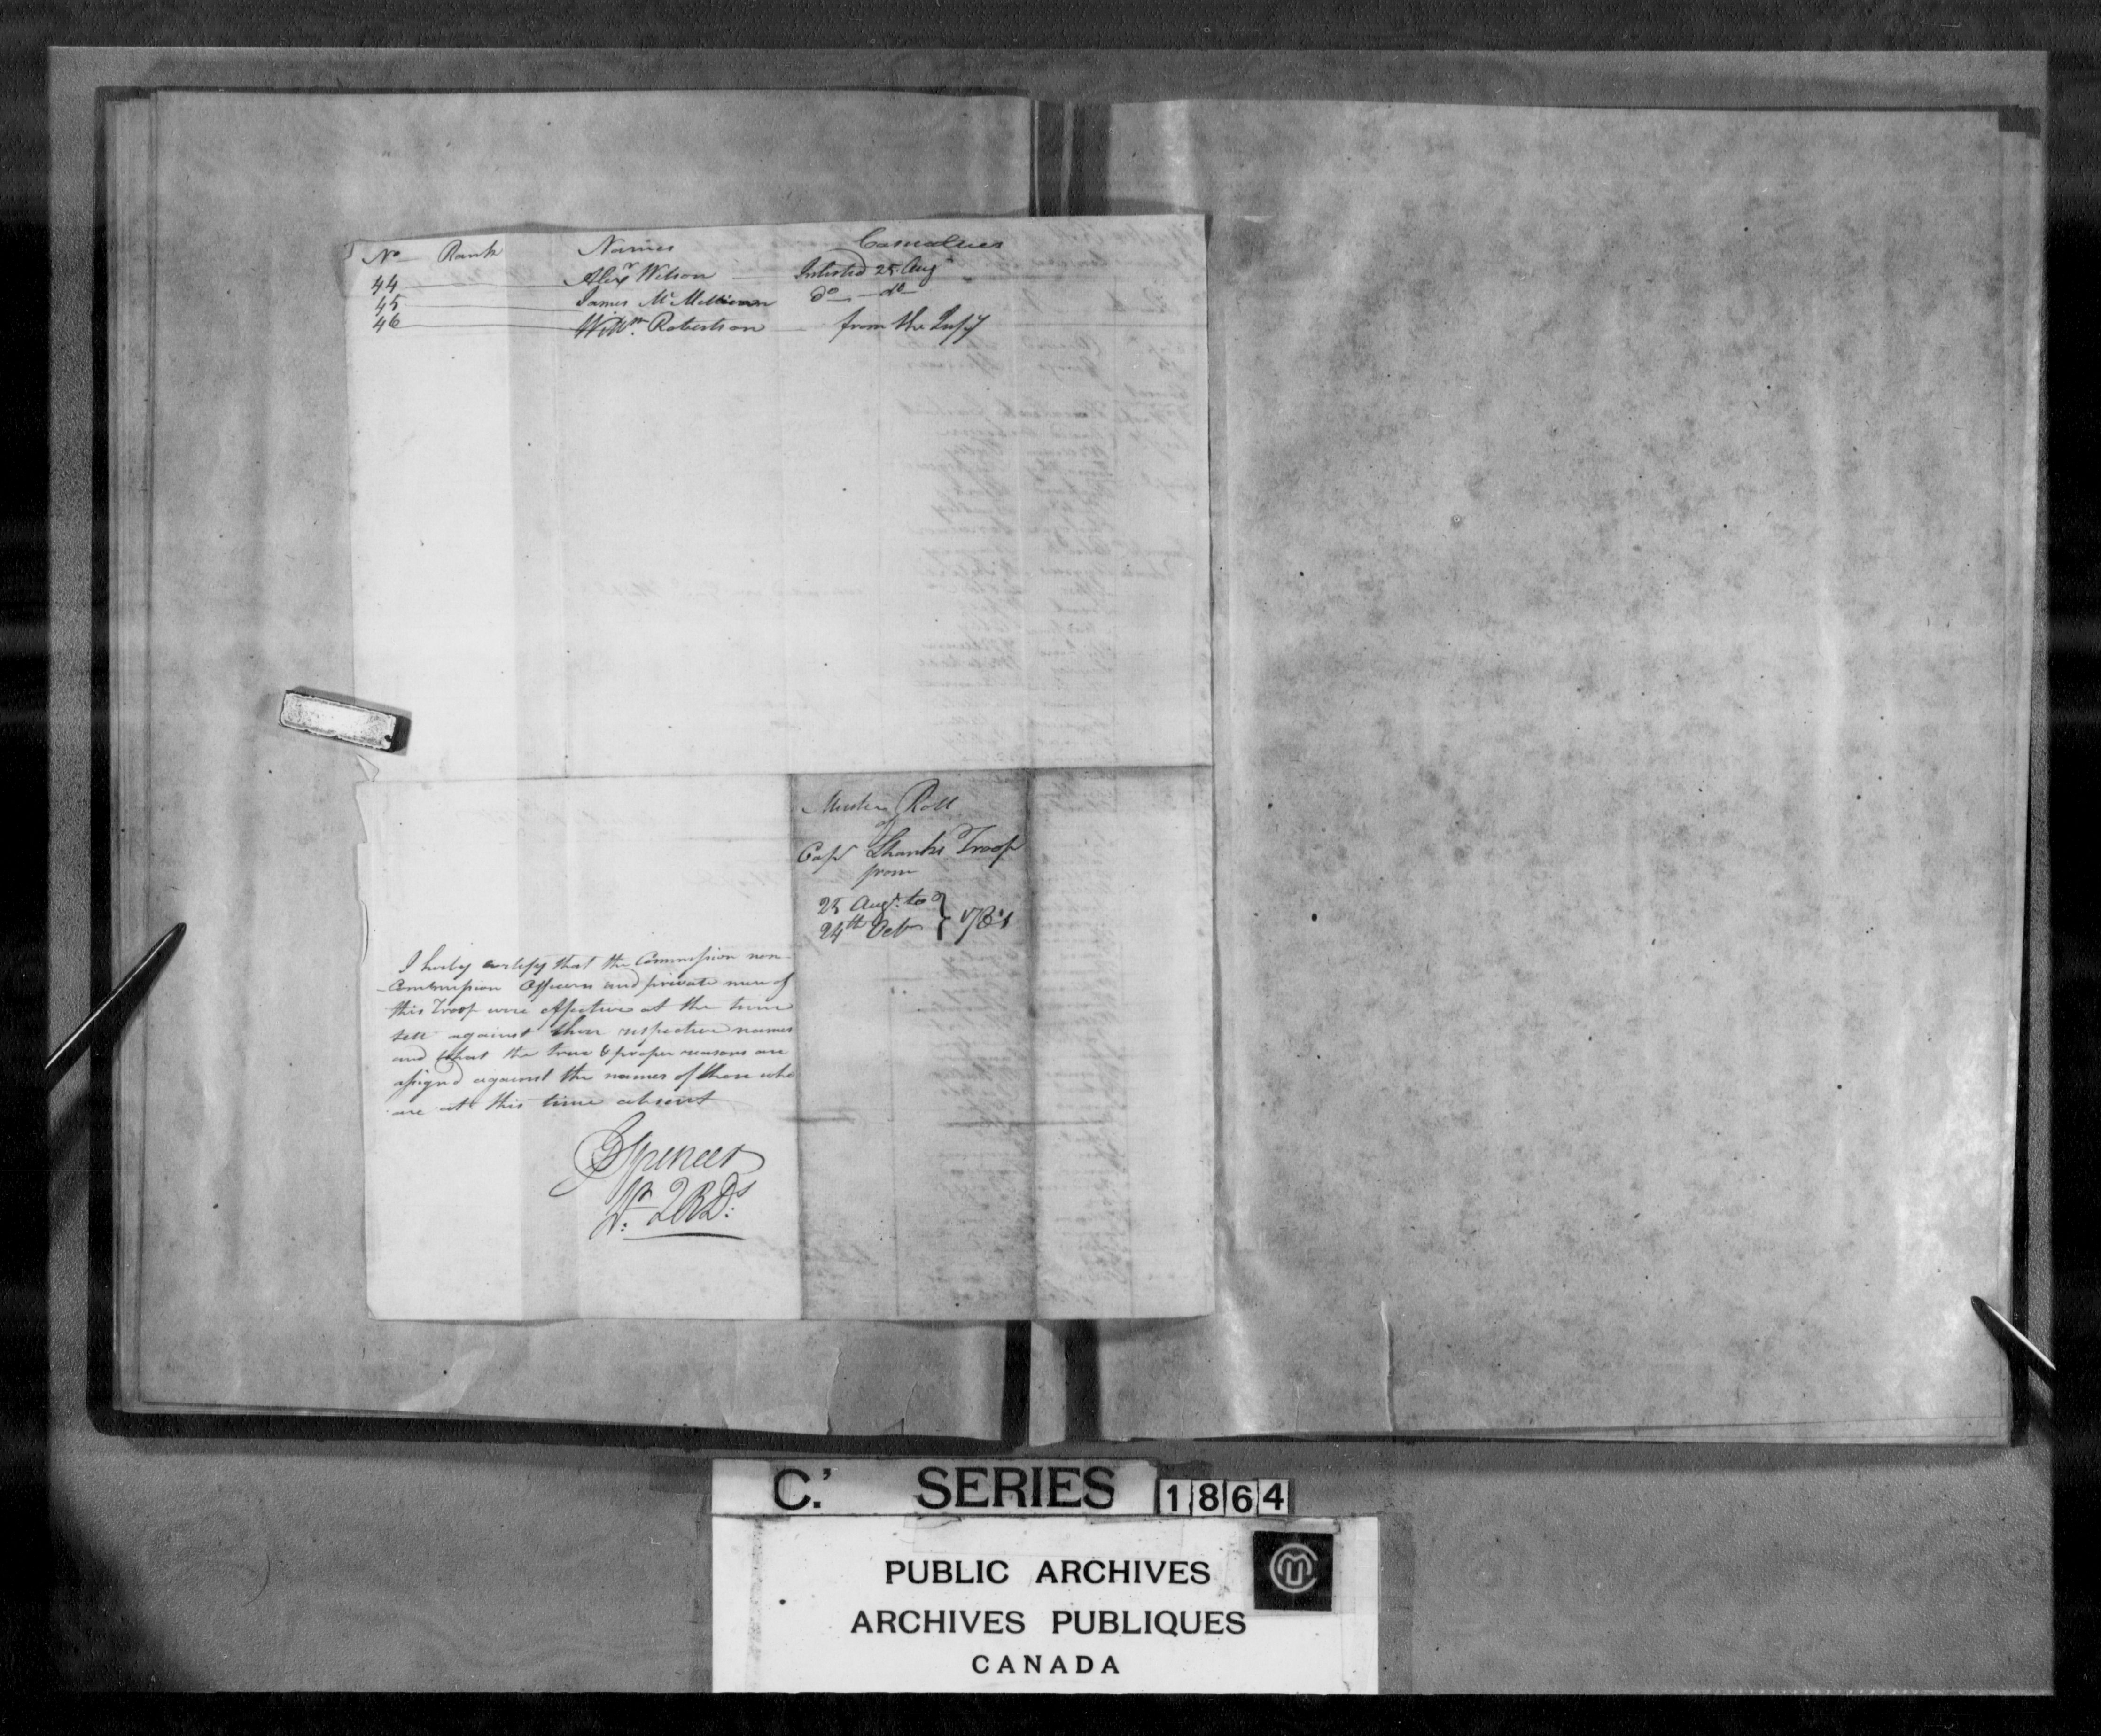 No Rank Names Casualties
44 Alexr Wilson Inlisted 25 Augt
45 James McMillian do do
46 Willm Robertson from the Infy
Muster Roll
of
Capt Shanks Troop
from
25 Augt to
24th Octr } 1781
I herby certify that the Commission non-
-Commission Officers and private men of
this Troop were effective at the time
sett against their respective names
and that the true & proper reasons are
assign'd against the names of those who
are at this time absent
GSpencer
Lt. QRDs:
C.' SERIES 1864
PUBLIC ARCHIVES
ARCHIVES PUBLIQUES
CANADA